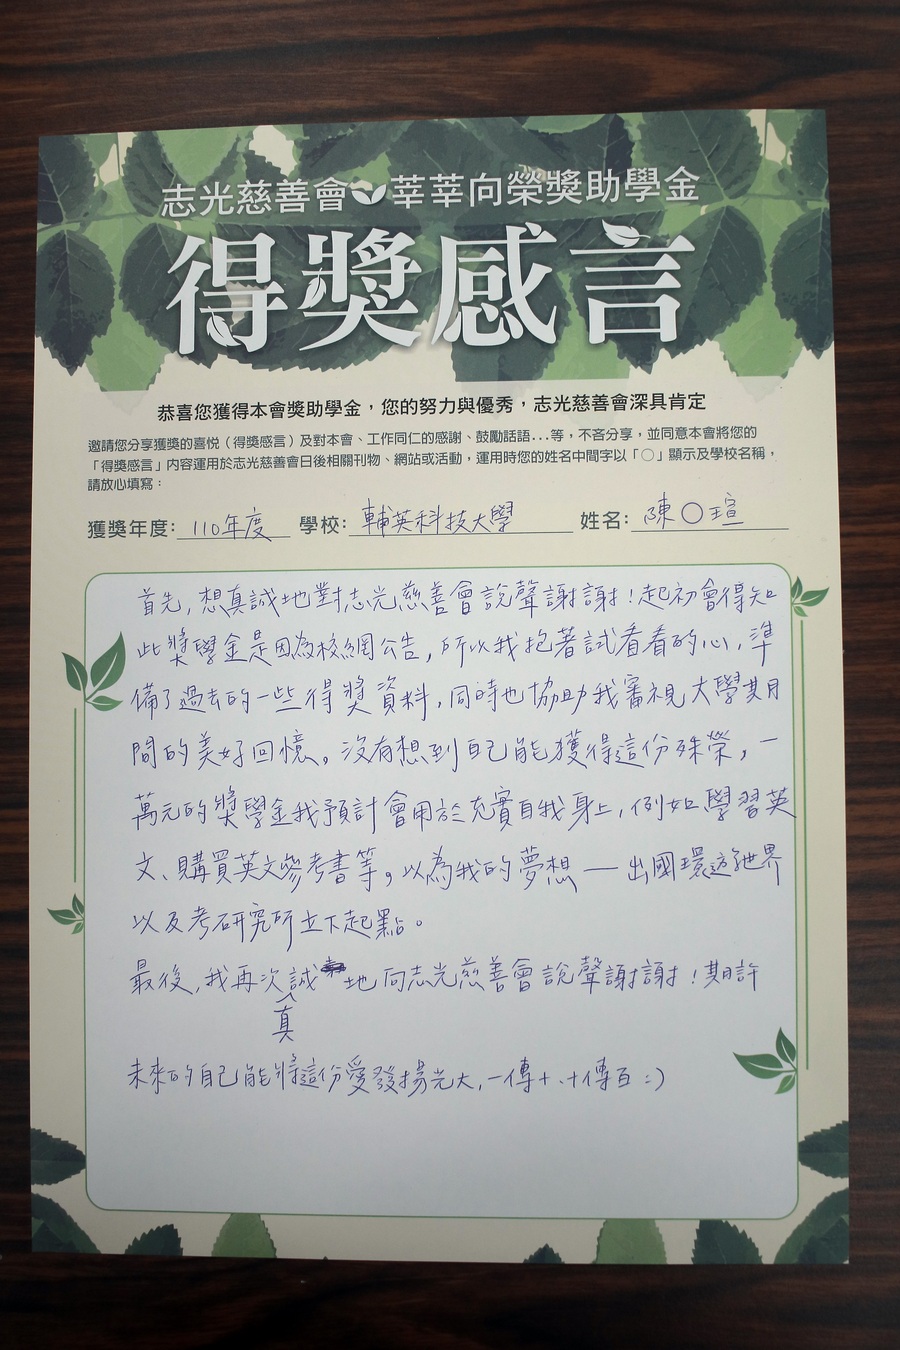 志光慈善會 莘莘向榮獎助學金
得獎感言
恭喜您獲得本會獎助學金，您的努力與優秀，志光慈善會深具肯定
邀請您分享獲獎的喜悅（得獎感言）及對本會、工作同仁的感謝、鼓勵話語...等，不吝分享，並同意本會將您的
「得獎感言」內容運用於志光慈善會日後相關刊物、網站或活動，運用時您的姓名中間字以「○」顯示及學校名稱，
請放心填寫：
獲獎年度：110年度 學校：輔英科技大學 姓名：陳○瑄
首先，想真誠地對志光慈善會說聲謝謝！起初會得知
此獎學金是因為校網公告，所以我抱著試看看的心，準
備了過去的一些得獎資料，同時也協助我審視大學期
間的美好回憶。沒有想到自己能獲得這份殊榮，一
萬元的獎學金我預計會用於充實自我身上，例如學習英
文、購買英文參考書等，以為我的夢想——出國環遊世界
以及考研究所立下起點。
最後，我再次誠地向志光慈善會說聲謝謝！期許
真
未來的自己能將這份愛發揚光大，一傳十、十傳百 :)